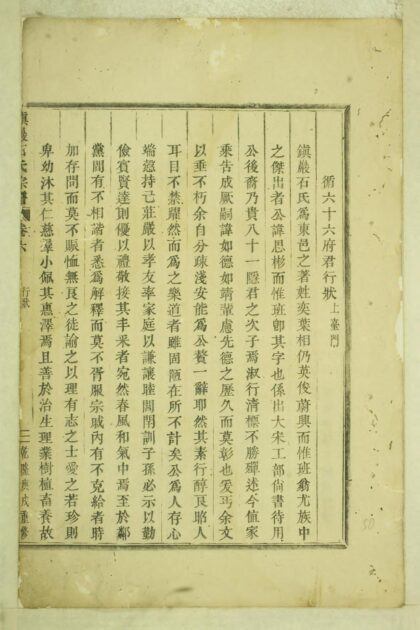 循六十六府君行狀 上臺門
鎮巖石氏為東邑之著姓奕葉相仍英俊蔚興而惟班翁尤族中
之傑出者公諱思彬而惟班卽其字也係出大宋工部尙書待用
公後裔乃貴八十一隱君之次子焉淑行清標不勝殫述今値家
乘吿成厥嗣諱如德如靖輩慮先德之歷久而莫彰也爰丐余文
以垂不朽余自分疎淺安能為公贅一辭耶然其素行醇良賂人
耳目不禁躍然而為之樂道者雖固陋在所不計矣公為人存心
端慤持己莊嚴以孝友率家庭以謙讓睦閭閈訓子孫必示以勤
儉賓賢達則優以禮敬接其丰采者宛然春風和氣中焉至於鄰
黨間有不相諧者悉為解釋而莫不胥服宗戚內有不克給者時
加存問而莫不賑恤無良之徒諭之以理有志之士愛之若珍則
卑幼沐其仁慈羣小佩其惠澤焉且善於治生理業樹植畜養故
鎮巖石氏宗譜 卷六 行狀